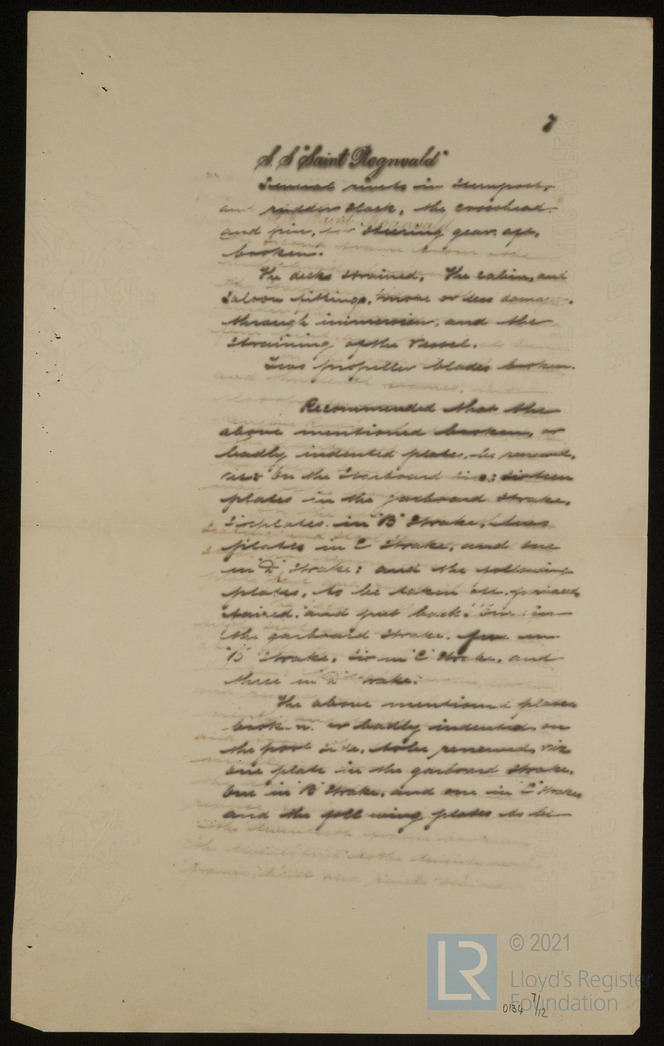 7
S.S "Saint Rognvald"
Several rivets in sternpost,
and rudder slack, the crosshead
and pin, for steering gear aft,
broken.
The decks strained, The cabin, and
Saloon fittings, more or less damage
through immersion, and the
straining of the Vessel.
Two propeller blades broken.
Recommended that the
above mentioned broken, or
badly indented plates, be renewed,
viz: On the Starboard side: sixteen
plates in the garboard Strake,
Six plates in "B" Strake, two
plates in C Strake, and one
in "D" Strake: and the following
plates, to be taken off, faired
and put back: One in
the garboard Strake, five in
"B" Strake, Six in "C" Strake, and
three in "D" Strake:
The above mentioned plates
broken or badly indented on
the port side, to be renewed, viz
one plate in the garboard Strake,
One in "B" Strake, and one in "C" Strake
and the following plates to be
LR
© 2021
Lloyd's Register
Foundation
0134 7/12